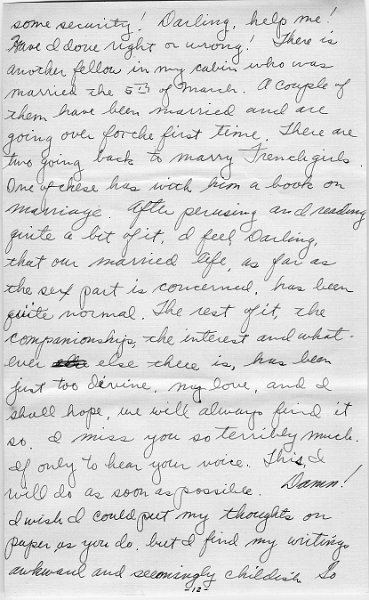 some security! Darling, help me!
Have I done right or wrong! There is
another fellow in my cabin who was
married the 5th of March. A couple of
them have been married and are
going over for the first time. There are
two going back to marry French girls.
One of these has with him a book on
marriage. After perusing and reading
quite a bit of it, I feel, Darling,
that our married life, as far as
the sex part is concerned, has been
quite normal. The rest of it, the
companionship, the interest and what-
ever else there is, has been
just too divine, my love, and I
shall hope, we will always find it
so. I miss you so terribly much.
If only to hear your voice. This, I
will do as soon as possible. Damn!
I wish I could put my thoughts on
paper as you do, but I find my writings
awkward and seemingly childish. So
-12-